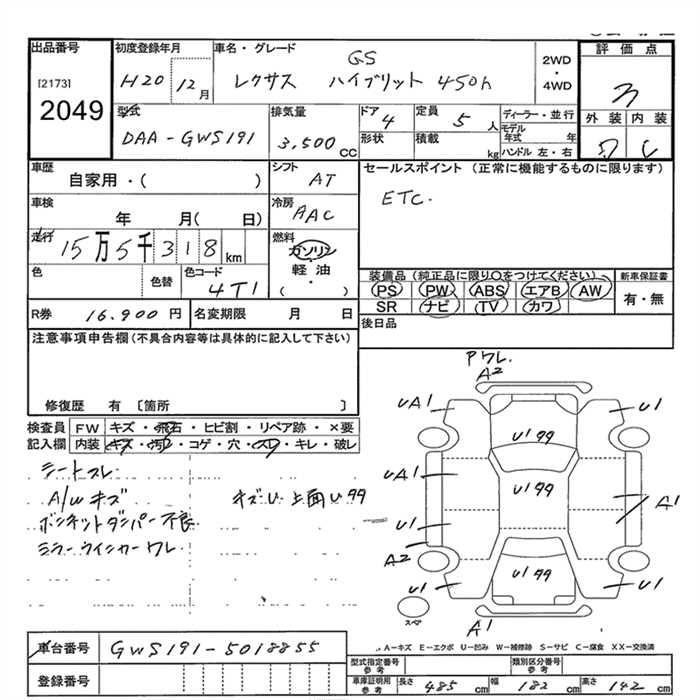 出品番号 初度登録年月 車名・グレード 評価点
[2173] GS 2WD
2049 H20 12月 レクサス ハイブリット 450h ・
4WD 3
型式 排気量 ドア 定員 ディーラー・並行 外装 内装
DAA-GWS191 3,500cc 4 5人 モデル年式 年
形状 積載 kg ハンドル 左・右 C
車歴 シフト セールスポイント (正常に機能するものに限ります)
自家用・( ) AT ETC.
車検 冷房
年 月( 日) AAC
走行 燃料
15万5千318km ガソリン
・
軽油
( ・ )
色 色替 色コード 装備品 (純正品に限り○をつけてください) 新車保証書
4T1 PS PW ABS エアB AW 有・無
SR ナビ TV カワ
R券 16.900円 名変期限 月 日 後日品
注意事項申告欄 (不具合内容等は具体的に記入して下さい)
修復歴 有 〔箇所 〕
検査員 FW キズ・飛石・ヒビ割・リペア跡・×要
記入欄 内装 キズ・汚レ・コゲ・穴・スレ・キレ・破レ
シートスレ
A/W キズ キズU 上面U99
ボンネットダンパー不良
ミラーウインカーワレ
Pワレ
A2
UA1 U1
U199
UA1 U199 A1
U1
A2 U199
U1 U1
スペア A1
A-キズ E-エクボ U-凹み W-補修跡 S-サビ C-腐食 XX-交換済
車台番号 GWS191-5018855
型式指定番号参考 類別区分番号参考
登録番号 車庫証明用参考 長さ 485cm 幅 182cm 高さ 142cm